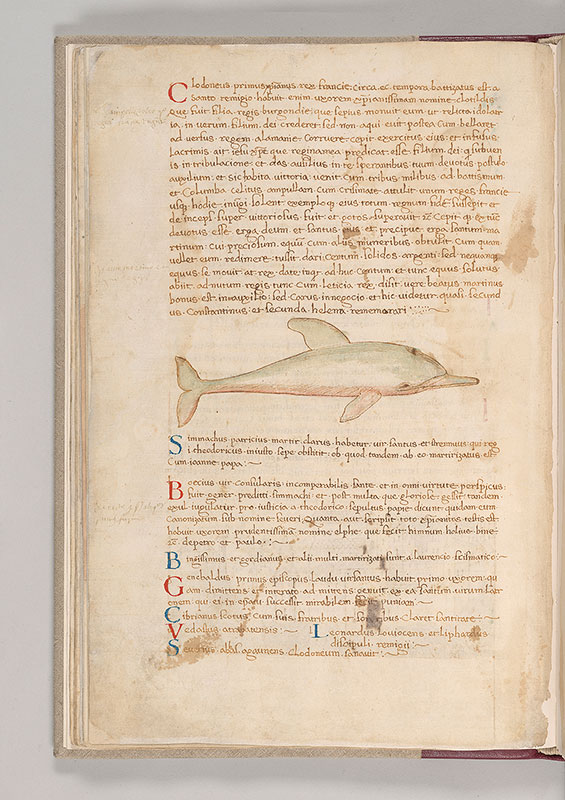 Clodoneus primus xpianus rex francie circa ec tempora battizatus est a
santo remigio habuit enim uxorem xpianissimam nomine clotildis
que fuit filia regis burgondie que sepius monuit eum ut relicta idolatr
ia in verum filium dei crederet sed non aqui evit postea cum bellaret
ad versus regem alamanie corruere cepit exercitus eius et infusus
lacrimis ait iesu xpe que regina mea predicat esse filium dei qi subuen
is in tribulacione et das auxilius in te sperantibus tuum devotus postulo
auxilium et sic habita vittoria venit cum tribus milibus ad battismum
et columba celitus ampullam cum crismate attulit unum reges francie
usqz hodie inungi solent exemplo qz eius totum regnum fidem suscepit et
de inceps super vittoriosus fuit et gotos superavit Cepit qz ex tunc
devotus esse erga deum et santus eius et precipue erga santum ma
rtinum cui preciosum equum cum aliis muneribus obtulit Cum quam
vellet eum redimere iussit dari centum solidos argenti sed nequaqz
equus se movit at rex date inqt ad huc centum et tunc equus solutus
abiit ad nutum regis tunc cum leticia rex dixit vere beatus martinus
bonus est in auxilio sed carus in negocio et hic videtur quasi secund
us Constantinus et secunda helena rememorari
Simmachus patricius martir clarus habetur vir santus et strennuus qui reg
i theodoricus iniusto sepe obstitit ob quod tandem ab eo martirizatus est
Cum ioanne papa
Boecius vir consularis incomperabilis sante et in omni virtute perspicuus
fuit gener preditti simmachi et post multa que gloriose gessit tandem
exul iugulatur pro iusticia a theodorico sepultus papie dicunt quidam eum
Canonizatum sub nomine severi Quanta aut scripsit toto xpianitas testis est
habuit uxorem prudentissima nomine elphe que fecit himnum
de petro et paulo
Bingissimus et gordianus et alii multi martirizati sunt a laurencio scismatico
Genebaldus primus episcopus laudu vir santus habuit primo uxorem qu
am dimittens et interate ad mittens genuit ex ea santum virum latr
onem qui ei in epatu successit mirabilem
Cibrianus scotus cum suis fratribus et sororibus claret santitate
Vedastus atrabatensis Leonardus loviocens et liphardus
discipuli remigii
Severius abas agaunens clodoneum sanavit